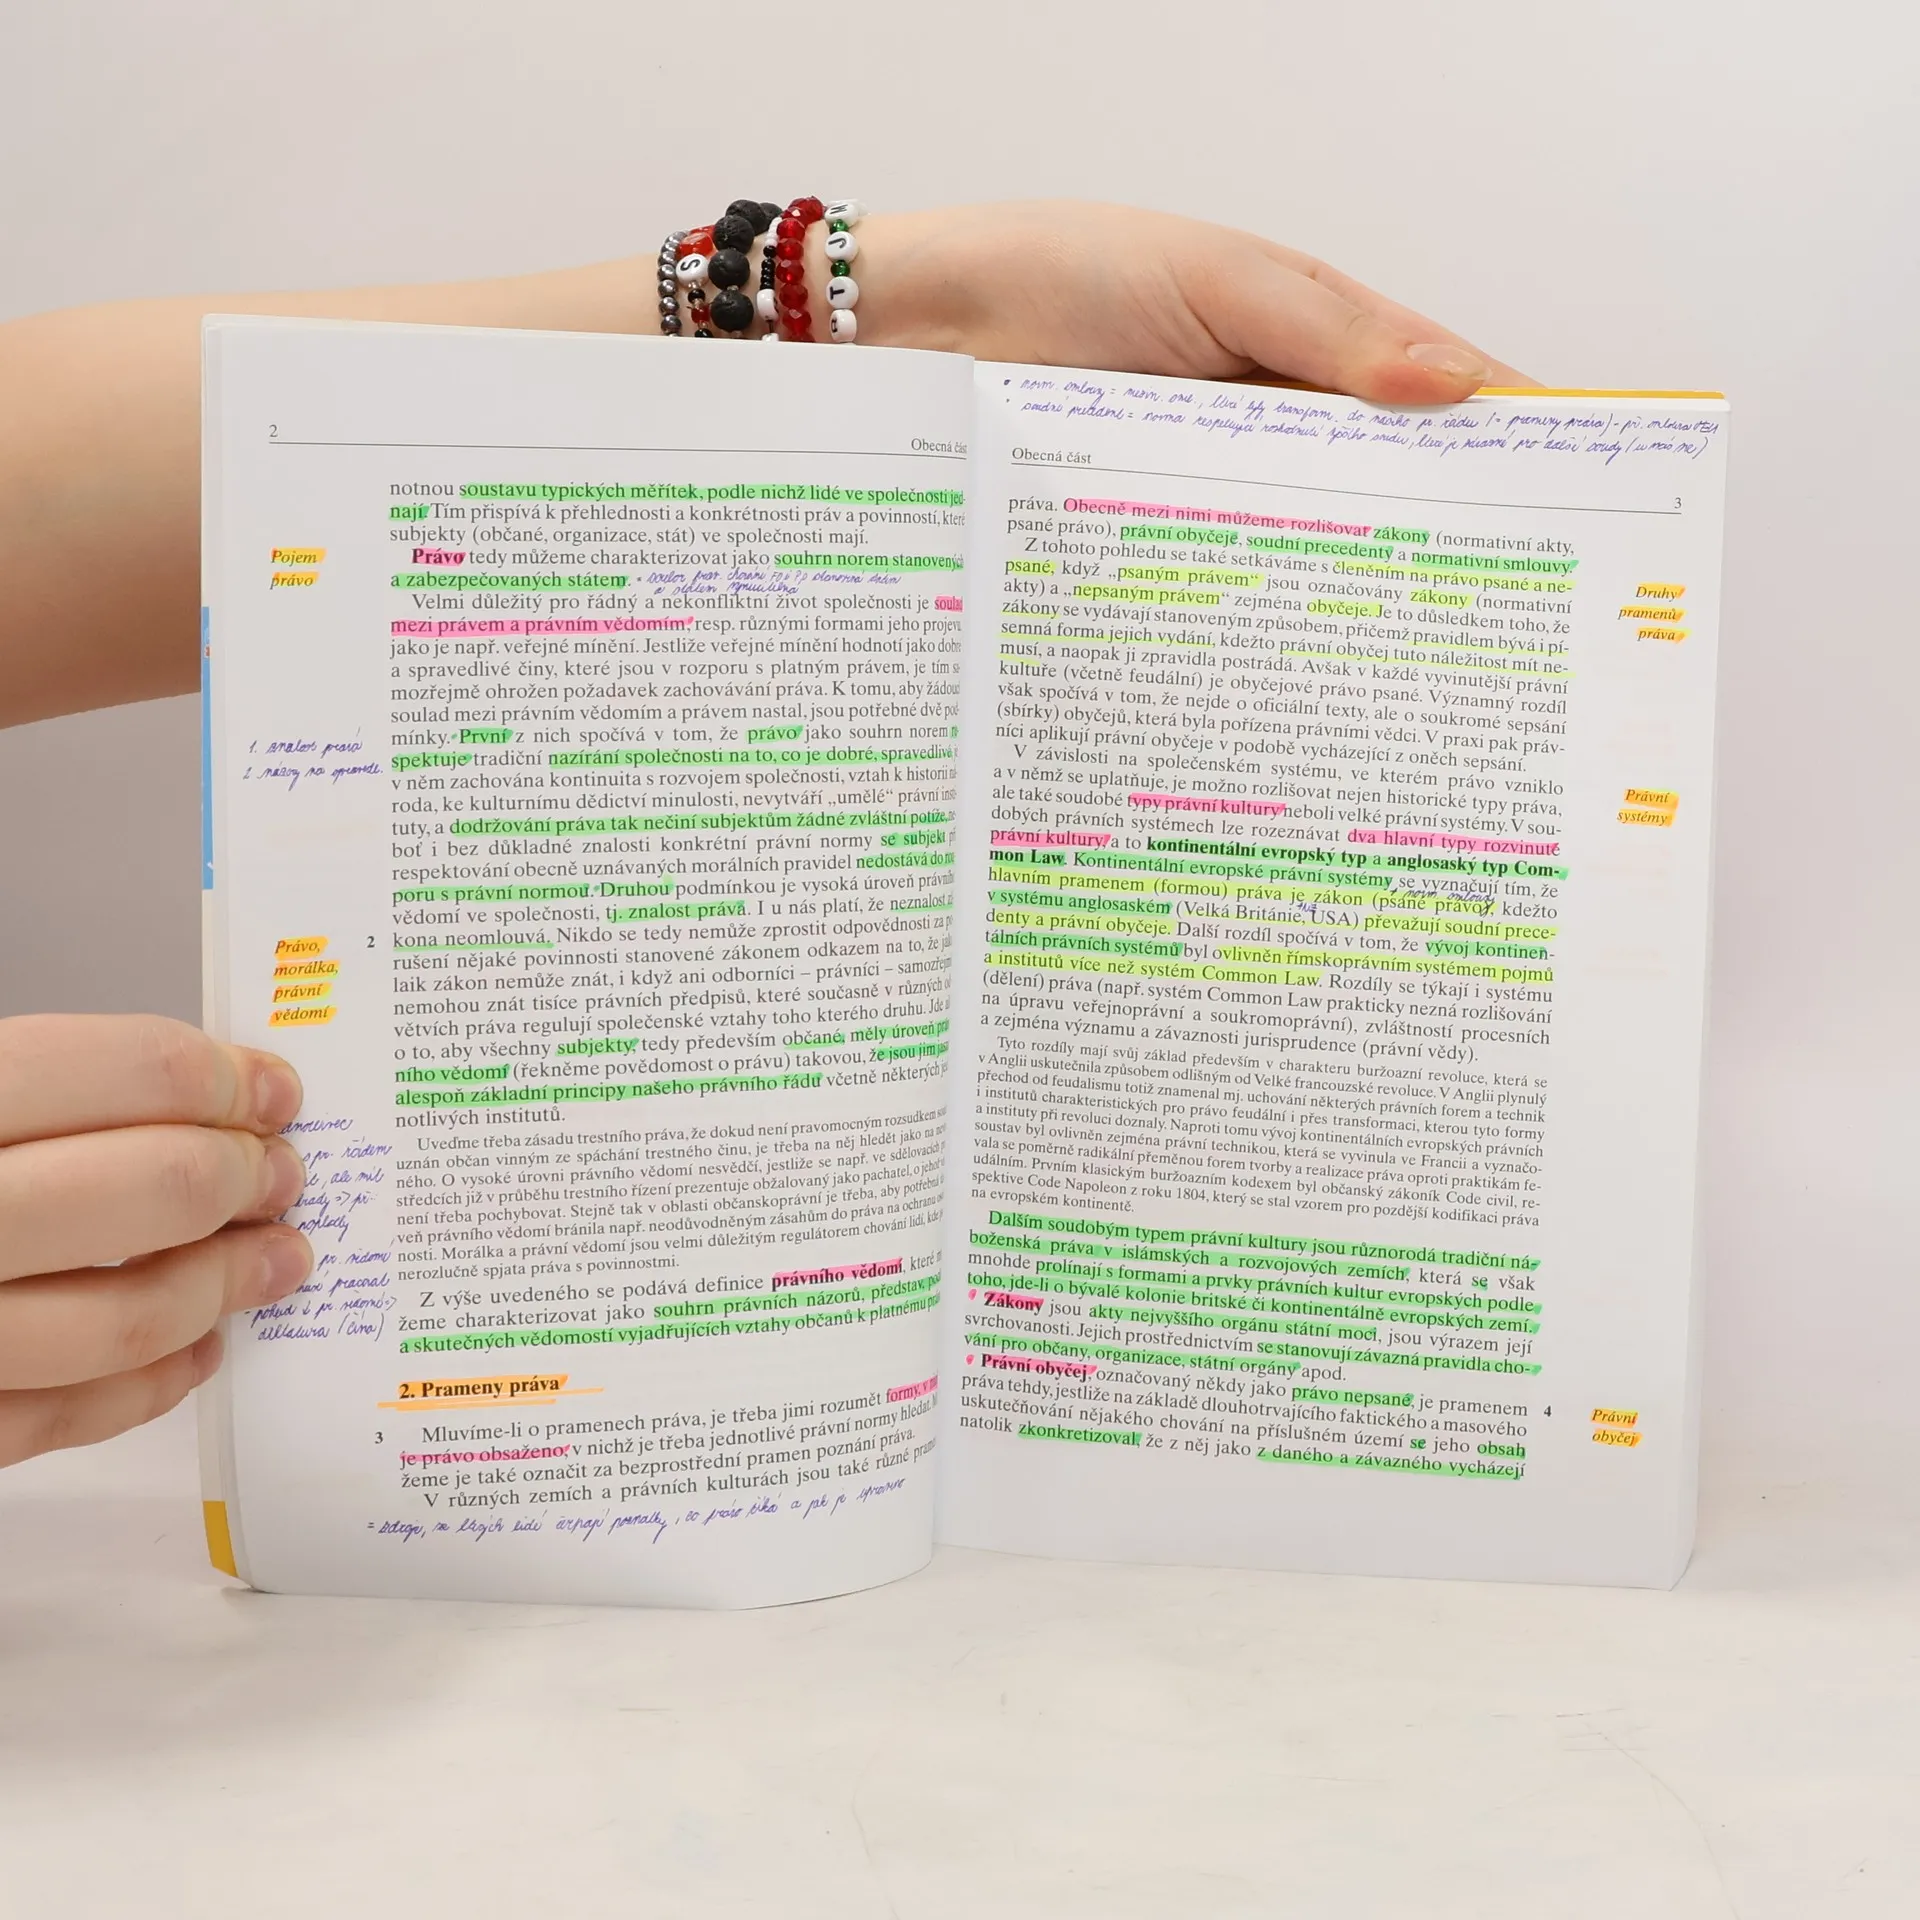 S
M
J
T
2
Obecná část
notnou soustavu typických měřítek, podle nichž lidé ve společnosti jed-
nají. Tím přispívá k přehlednosti a konkrétnosti práv a povinností, které
subjekty (občané, organizace, stát) ve společnosti mají.
Pojem
právo
Právo tedy můžeme charakterizovat jako souhrn norem stanovených
a zabezpečovaných státem.
Velmi důležitý pro řádný a nekonfliktní život společnosti je soulad
mezi právem a právním vědomím, resp. různými formami jeho projevu
jako je např. veřejné mínění. Jestliže veřejné mínění hodnotí jako dobré
a spravedlivé činy, které jsou v rozporu s platným právem, je tím sa-
mozřejmě ohrožen požadavek zachovávání práva. K tomu, aby žádoucí
soulad mezi právním vědomím a právem nastal, jsou potřebné dvě pod-
mínky. První z nich spočívá v tom, že právo jako souhrn norem re-
spektuje tradiční nazírání společnosti na to, co je dobré, spravedlivé,
1. znalost práva
2 názory na spravedl.
v něm zachována kontinuita s rozvojem společnosti, vztah k historii ná-
roda, ke kulturnímu dědictví minulosti, nevytváří „umělé“ právní insti-
tuty, a dodržování práva tak nečiní subjektům žádné zvláštní potíže, ne-
boť i bez důkladné znalosti konkrétní právní normy se subjekt při
respektování obecně uznávaných morálních pravidel nedostává do roz-
poru s právní normou. Druhou podmínkou je vysoká úroveň právního
vědomí ve společnosti, tj. znalost práva. I u nás platí, že neznalost zá-
Právo,
morálka,
právní
vědomí
2
kona neomlouvá. Nikdo se tedy nemůže zprostit odpovědnosti za po-
rušení nějaké povinnosti stanovené zákonem odkazem na to, že jako
laik zákon nemůže znát, i když ani odborníci – právníci – samozřejmě
nemohou znát tisíce právních předpisů, které současně v různých od-
větvích práva regulují společenské vztahy toho kterého druhu. Jde
o to, aby všechny subjekty, tedy především občané, měly úroveň práv-
ního vědomí (řekněme povědomost o právu) takovou, že jsou jim jasné
alespoň základní principy našeho právního řádu včetně některých jed-
notlivých institutů.
Uveďme třeba zásadu trestního práva, že dokud není pravomocným rozsudkem
uznán občan vinným ze spáchání trestného činu, je třeba na něj hledět jako na nevin-
ného. O vysoké úrovni právního vědomí nesvědčí, jestliže se např. ve sdělovacích pro-
středcích již v průběhu trestního řízení prezentuje obžalovaný jako pachatel, o jehož
není třeba pochybovat. Stejně tak v oblasti občanskoprávní je třeba, aby potřebná
veň právního vědomí bránila např. neodůvodněným zásahům do práva na ochranu
nosti. Morálka a právní vědomí jsou velmi důležitým regulátorem chování lidí, kde
nerozlučně spjata práva s povinnostmi.
pr. řádem
, ale měl
pr. vědomí
pracovat
diktatura (Čína)
Z výše uvedeného se podává definice právního vědomí, které
žeme charakterizovat jako souhrn právních názorů, představ,
a skutečných vědomostí vyjadřujících vztahy občanů k platnému
2. Prameny práva
3
Mluvíme-li o pramenech práva, je třeba jimi rozumět formy, v
je právo obsaženo, v nichž je třeba jednotlivé právní normy hledat.
žeme je také označit za bezprostřední pramen poznání práva.
V různých zemích a právních kulturách jsou také různé
= zdroje, ze kterých lidé čerpají poznatky, co právo říká a jak je upraveno
• norm. smlouvy = mezin. sml., které byly transform. do našeho pr. řádu (= prameny práva) - př. smlouva
• soudní precedent = norma respektující rozhodnutí vyššího soudu, které je závazné pro další soudy (u nás ne)
Obecná část
3
práva. Obecně mezi nimi můžeme rozlišovat zákony (normativní akty,
psané právo), právní obyčeje, soudní precedenty a normativní smlouvy.
Z tohoto pohledu se také setkáváme s členěním na právo psané a ne-
psané, když „psaným právem“ jsou označovány zákony (normativní
akty) a „nepsaným právem“ zejména obyčeje. Je to důsledkem toho, že
zákony se vydávají stanoveným způsobem, přičemž pravidlem bývá i pí-
semná forma jejich vydání, kdežto právní obyčej tuto náležitost mít ne-
musí, a naopak ji zpravidla postrádá. Avšak v každé vyvinutější právní
kultuře (včetně feudální) je obyčejové právo psané. Významný rozdíl
však spočívá v tom, že nejde o oficiální texty, ale o soukromé sepsání
(sbírky) obyčejů, která byla pořízena právními vědci. V praxi pak práv-
níci aplikují právní obyčeje v podobě vycházející z oněch sepsání.
Druhy
pramenů
práva
V závislosti na společenském systému, ve kterém právo vzniklo
a v němž se uplatňuje, je možno rozlišovat nejen historické typy práva,
ale také soudobé typy právní kultury neboli velké právní systémy. V sou-
dobých právních systémech lze rozeznávat dva hlavní typy rozvinuté
právní kultury, a to kontinentální evropský typ a anglosaský typ Com-
mon Law. Kontinentální evropské právní systémy se vyznačují tím, že
hlavním pramenem (formou) práva je zákon (psané právo), kdežto
+ norm. smlouvy
v systému anglosaském (Velká Británie, USA) převažují soudní prece-
denty a právní obyčeje. Další rozdíl spočívá v tom, že vývoj kontinen-
tálních právních systémů byl ovlivněn římskoprávním systémem pojmů
a institutů více než systém Common Law. Rozdíly se týkají i systému
(dělení) práva (např. systém Common Law prakticky nezná rozlišování
na úpravu veřejnoprávní a soukromoprávní), zvláštností procesních
a zejména významu a závaznosti jurisprudence (právní vědy).
Právní
systémy
Tyto rozdíly mají svůj základ především v charakteru buržoazní revoluce, která se
v Anglii uskutečnila způsobem odlišným od Velké francouzské revoluce. V Anglii plynulý
přechod od feudalismu totiž znamenal mj. uchování některých právních forem a technik
i institutů charakteristických pro právo feudální i přes transformaci, kterou tyto formy
a instituty při revoluci doznaly. Naproti tomu vývoj kontinentálních evropských právních
soustav byl ovlivněn zejména právní technikou, která se vyvinula ve Francii a vyznačo-
vala se poměrně radikální přeměnou forem tvorby a realizace práva oproti praktikám fe-
událním. Prvním klasickým buržoazním kodexem byl občanský zákoník Code civil, re-
spektive Code Napoleon z roku 1804, který se stal vzorem pro pozdější kodifikaci práva
na evropském kontinentě.
Dalším soudobým typem právní kultury jsou různorodá tradiční ná-
boženská práva v islámských a rozvojových zemích, která se však
mnohde prolínají s formami a prvky právních kultur evropských podle
toho, jde-li o bývalé kolonie britské či kontinentálně evropských zemí.
Zákony jsou akty nejvyššího orgánu státní moci, jsou výrazem její
svrchovanosti. Jejich prostřednictvím se stanovují závazná pravidla cho-
vání pro občany, organizace, státní orgány apod.
Právní obyčej, označovaný někdy jako právo nepsané, je pramenem
práva tehdy, jestliže na základě dlouhotrvajícího faktického a masového
uskutečňování nějakého chování na příslušném území se jeho obsah
natolik zkonkretizoval, že z něj jako z daného a závazného vycházejí
4
Právní
obyčej